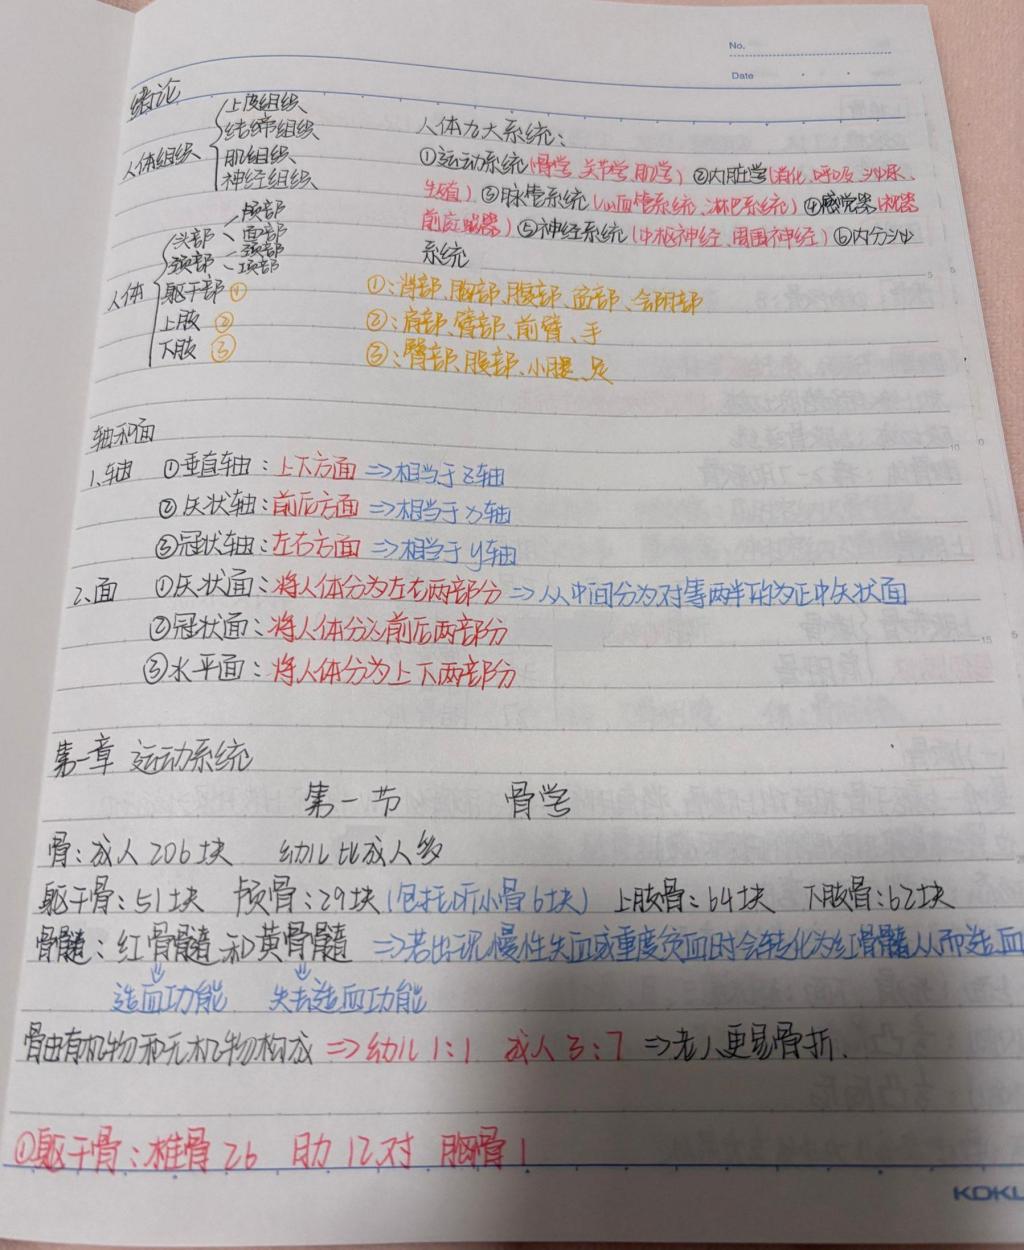 No.
Date
绪论
人体组织
上皮组织
结缔组织
肌组织
神经组织
人体六大系统：
①运动系统(骨学、关节学、肌学) ②内脏学(消化、呼吸、泌尿、
生殖) ③脉管系统(心血管系统、淋巴系统) ④感觉器(视器
前庭蜗器) ⑤神经系统(中枢神经、周围神经) ⑥内分泌
系统
人体
头部 颅部
面部
颈部 颈部
项部
躯干部①
上肢 ②
下肢 ③
①：背部、胸部、腹部、盆部、会阴部
②：肩部、臂部、前臂、手
③：臀部、股部、小腿、足
轴和面
1、轴 ①垂直轴：上下方面⇒相当于z轴
②矢状轴：前后方面⇒相当于x轴
③冠状轴：左右方面⇒相当于y轴
2、面 ①矢状面：将人体分为左右两部分⇒从中间分为对等两半的为正中矢状面
②冠状面：将人体分为前后两部分
③水平面：将人体分为上下两部分
第一章 运动系统
第一节 骨学
骨：成人206块 幼儿比成人多
躯干骨：51块 颅骨：29块(包括听小骨6块) 上肢骨：64块 下肢骨：62块
骨髓：红骨髓和黄骨髓 ⇒若出现慢性失血或重度贫血时会转化为红骨髓从而造血
造血功能 失去造血功能
骨由有机物和无机物构成⇒幼儿1:1 成人3:7 ⇒老人更易骨折.
①躯干骨：椎骨26 肋12对 胸骨1